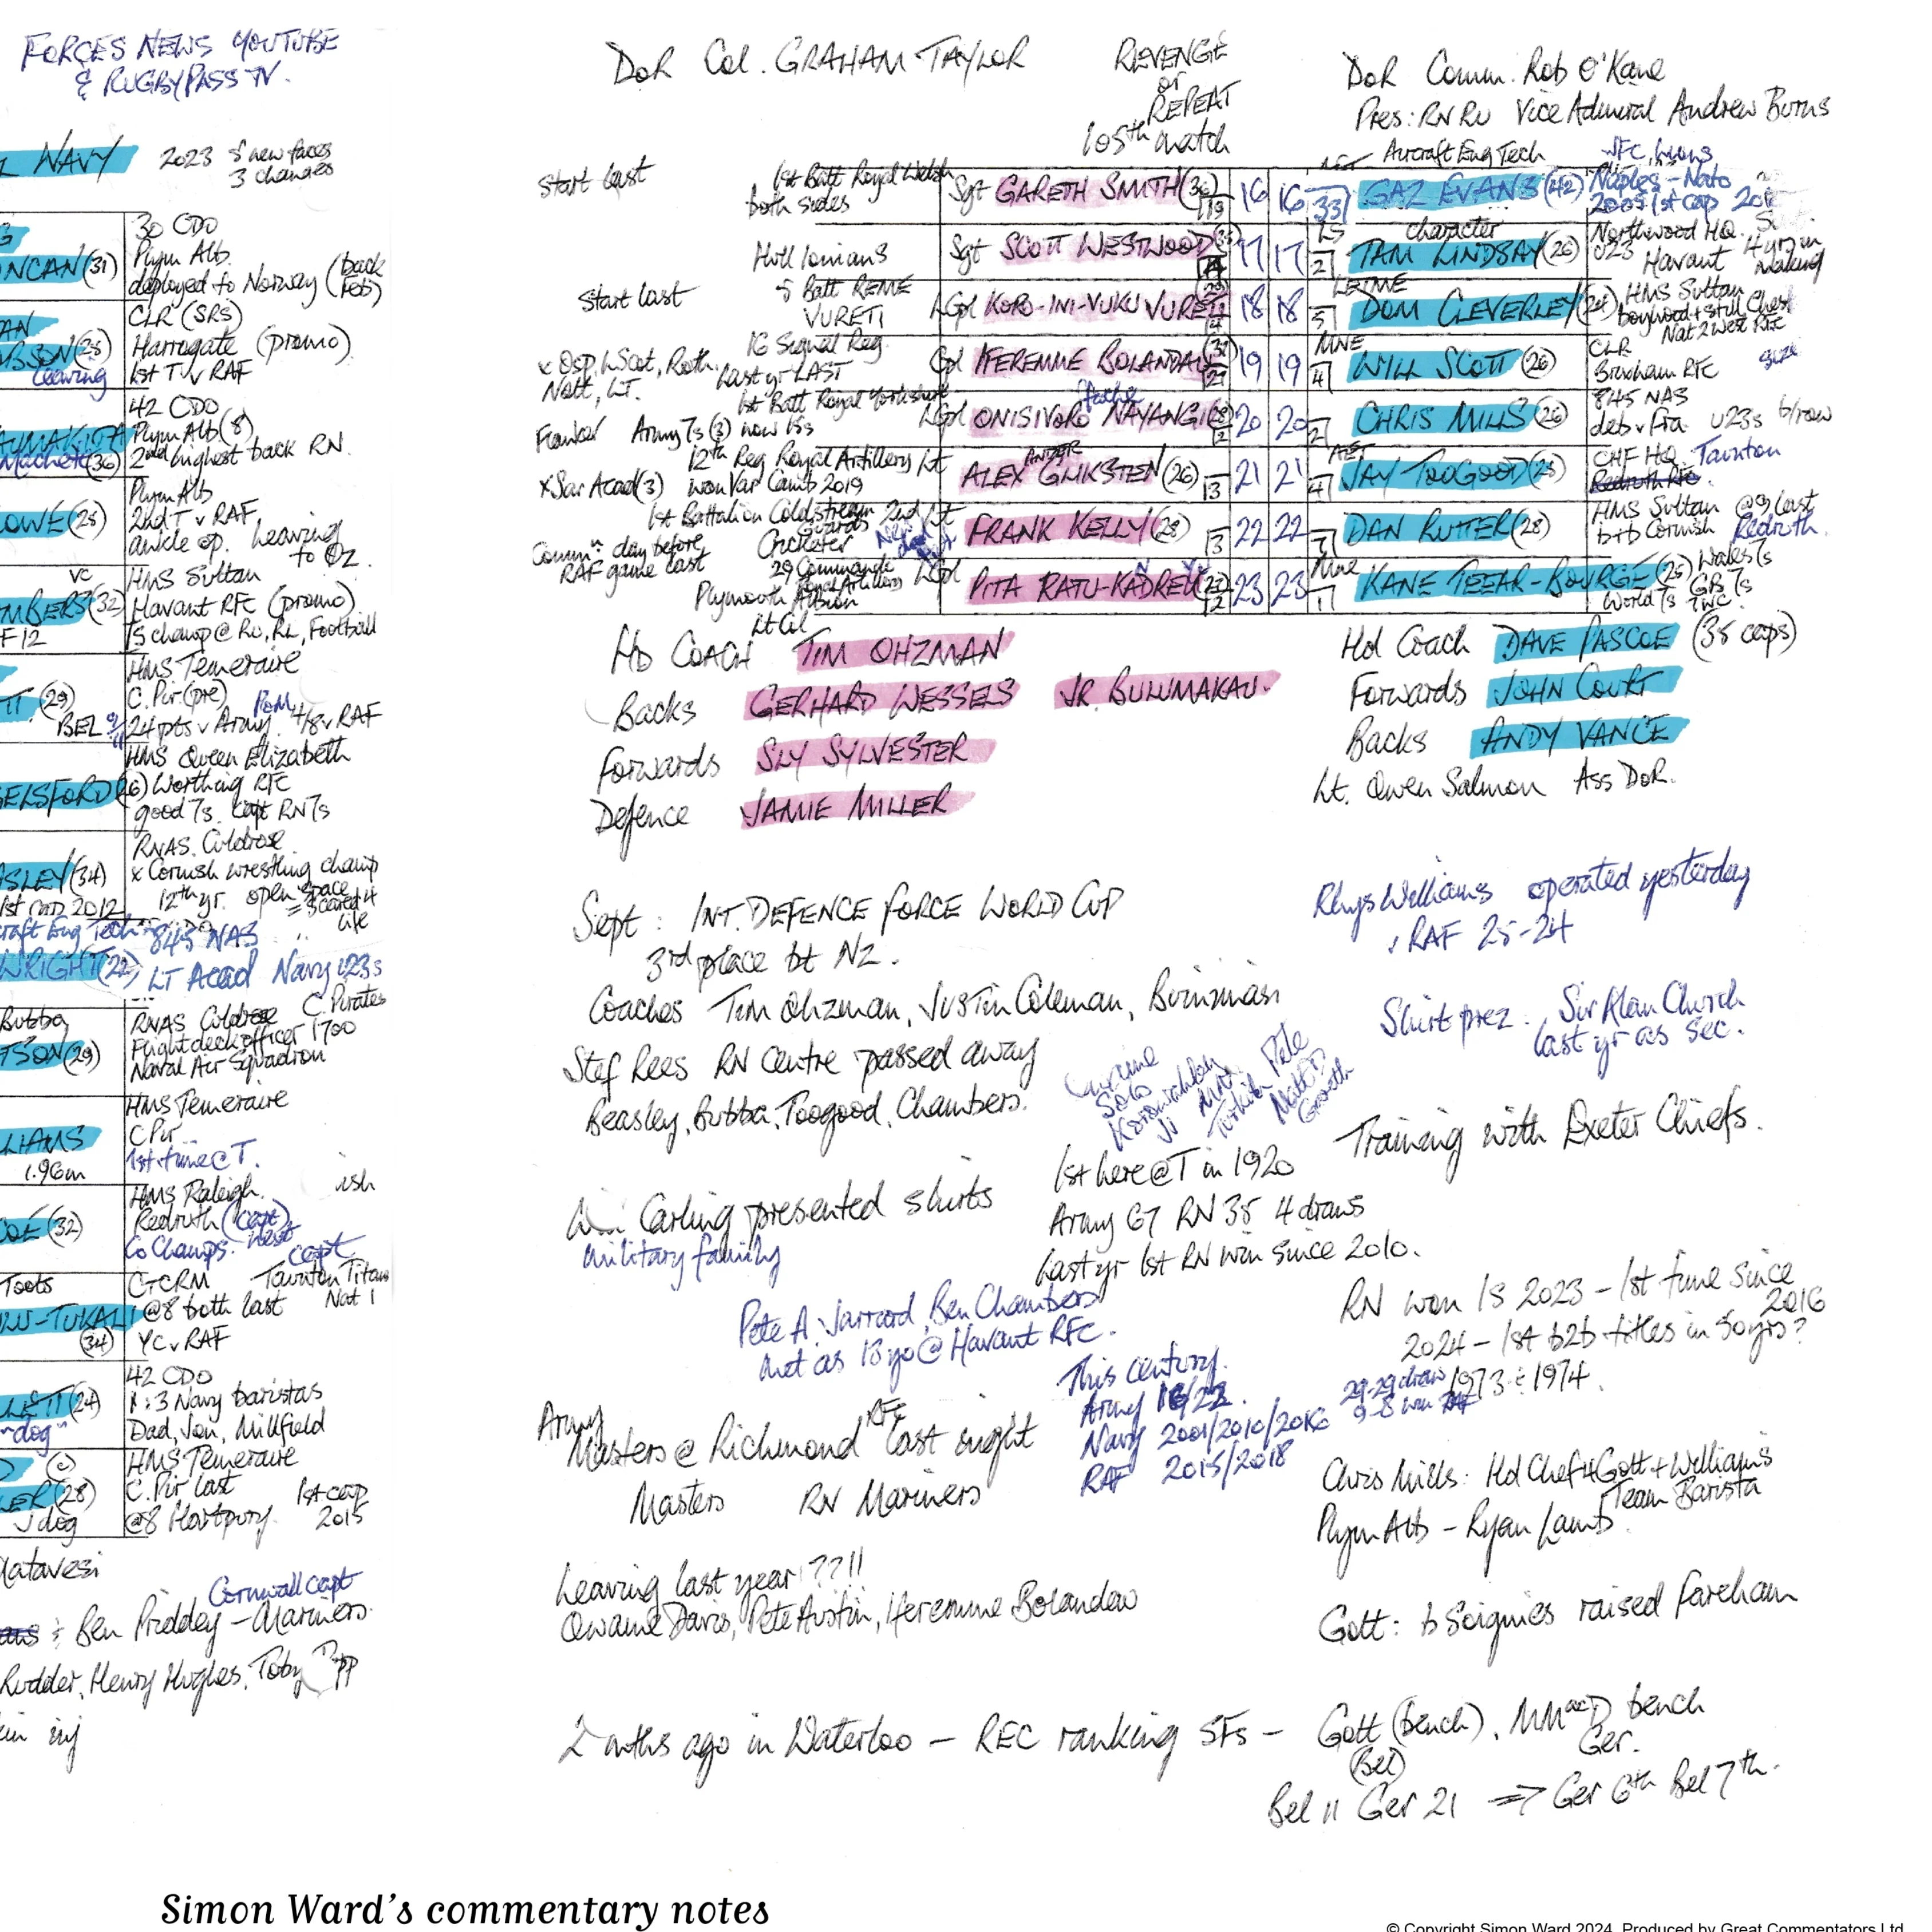 FORCES NEWS YOUTUBE
& RUGBYPASS TV.
NAVY 2023 5 new faces
3 changes
30 CDO
NCAN (31) Plym Alb.
deployed to Norway (back Feb)
CLR (SRS)
Harrogate (promo)
leaving 1st T v RAF
42 CDO
Plym Alb (8)
(36) 2nd highest back RN
Plym Alb
OWE (25) 2nd T v RAF
ankle op. leaving
to Oz.
VC HMS Sultan
MBERS (32) Havant RFC (promo)
F12 7s champ @ RU, RL, Football
HMS Temeraire
TT (29) C. Pir (pre) PoM
BEL 24 pts v Army 4/8 v RAF
HMS Queen Elizabeth
ELSFORD (26) Worthing RFC
good 7s. Capt RN 7s
RNAS. Culdrose
ASLEY (34) x Cornish wrestling champ
12th yr. open space
= scared 4
life
1st cap 2012
craft Eng Tech 845 NAS
WRIGHT (22) LT Acad Navy U23s
C. Pirates
Bubba RNAS Culdrose
TSON (29) Flight deck officer 1700
Naval Air Squadron
HMS Temeraire
LIAMS C Pir
1.96m 1st time @ T.
HMS Raleigh.
COE (32) Redruth (capt)
Co Champs. West capt
Toots CTCRM Taunton Titans
Nat 1
-TUKALI @8 both last
(34) YC v RAF
42 CDO
(24) 1:3 Navy baristas
"dog" Dad, Jon, Millfield
(C) HMS Temeraire
LER (28) C. Pir last 1st cap
J dog @8 Hartpury. 2015
Matavesi
Cornwall capt
& Ben Priddey – Mariners
Rudder, Henry Hughes, Toby
inj
DoR Col. GRAHAM TAYLOR
REVENGE
or
REPEAT
105th match
DoR Comm. Rob O'Kane
Pres: RNRU Vice Admiral Andrew Burns
Start last 1st Batt Royal Welsh both sides Sgt GARETH SMITH (36) 19 16
16 33 AET Aircraft Eng Tech GAZ EVANS (42) JFC, Lions Naples – Nato 2005 1st cap
Hull Ionians Sgt SCOTT WESTWOOD 17
17 2 LS character TAM LINDSAY (26) Northwood HQ. U23 Havant 4 yrs in making
Start last 5 Batt REME VURETI LCpl KORO-INI-VUKU VURETI 18
18 5 LETME DOM CLEVERLEY (24) HMS Sultan boyhood + still Chest Nat 2 West RFC
x Osp, L Scot, Roth, Nott, LT. 16 Signal Reg Last yr LAST Cpl IFEREMME BOLANDAU 19
19 4 MNE WILL SCOTT (26) CLR Brixham RFC size
Flanker Army 7s (3) now 15s 1st Batt Royal Yorkshire LCpl ONISIVORO NAYANGI (28) 12 20
20 2 CHRIS MILLS (26) 845 NAS deb v Fra. U23s b/row
x Sar Acad (3) 12th Reg Royal Artillery Lt won Var Camb 2019 ALEX GLIKSTEN (26) 13 21
21 4 AET JAY TOOGOOD (25) CHF HQ Taunton Redruth RFC.
1st Battalion Coldstream Guards 2nd Lt Cricketer Commn day before RAF game last FRANK KELLY (28) 13 22
22 DAN RUTTER (28) HMS Sultan @9 last b+b Cornish Redruth.
29 Commando Royal Artillery Plymouth Albion LCpl PITA RATU-KADREU 12 23
23 1 Mne KANE TEEAR-BOURGE (25) Wales 7s GB 7s World 7s RWC.
Lt Col
HD COACH TIM OHZMAN
Backs GERHARD WESSELS JR. BULUMAKAU.
Forwards SLY SYLVESTER
Defence JAMIE MILLER
Hd Coach DAVE PASCOE (35 caps)
Forwards JOHN COURT
Backs ANDY VANCE
Lt. Owen Salmon Ass DoR.
Sept: INT. DEFENCE FORCE WORLD CUP
3rd place bt NZ.
Coaches Tim Ohzman, Justin Coleman,
Stef Rees RN Centre passed away
Beasley, Bubba, Toogood, Chambers.
Carling presented shirts
military family
1st here @ T in 1920
Army 67 RN 35 4 draws
Last yr 1st RN win since 2010.
Pete A, Jarrard, Ben Chambers
met as 13 yo @ Havant RFC.
Army
Masters @ Richmond RFC last night
Masters RN Mariners
This century.
Army 16/22.
Navy 2001/2010/2016
RAF 2015/2018
Leaving last year!??!!
Qwaine Davis, Pete Austin, Iferemme Bolandau
Rhys Williams operated yesterday
v RAF 25-24
Shirt prez. Sir Alan Church
last yr as sec.
Training with Exeter Chiefs.
RN won IS 2023 – 1st time since
2016
2024 – 1st b2b titles in 50 yrs?
1973 & 1974.
29-29 draw
9-8 win
Chris Mills: Hd Chef 4 Gott + Williams
Team Barista
Plym Alb – Ryan Lamb
Gott: b Soignies raised Fareham
2 mths ago in Waterloo – REC ranking SFs – Gott (bench), bench
(Bel) Ger.
Bel 11 Ger 21 ⇒ Ger 6th Bel 7th.
Simon Ward's commentary notes
© Copyright Simon Ward 2024. Produced by Great Commentators Ltd